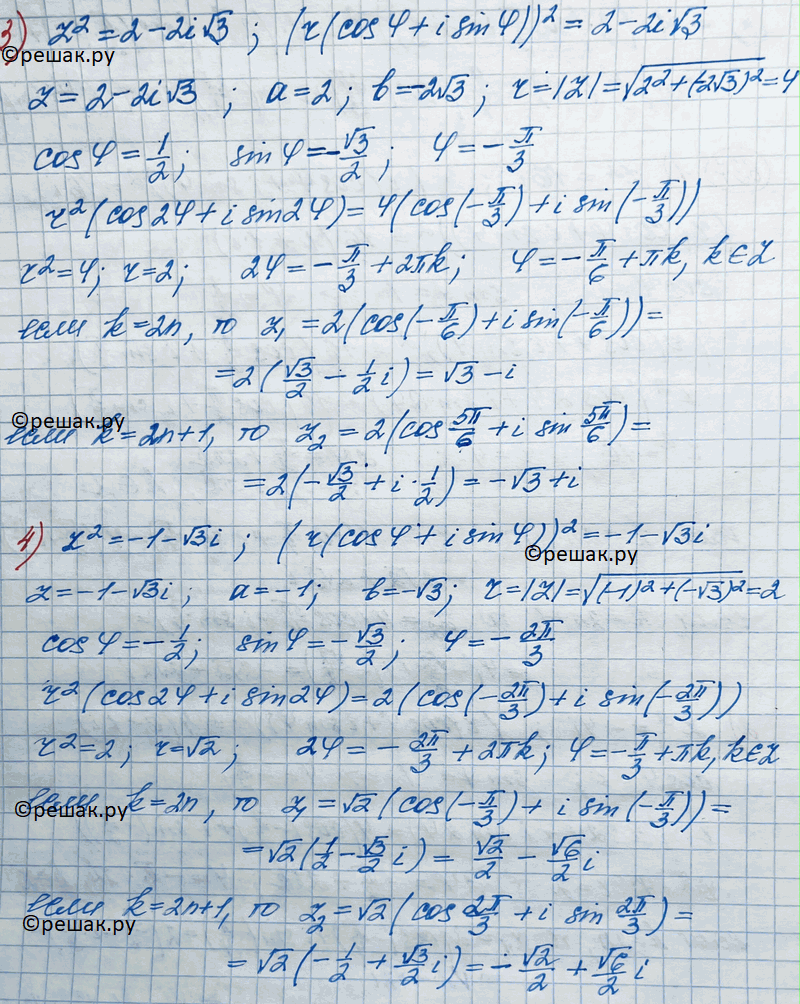 3) z² = 2 - 2i√3 ; (r(cos φ + i sin φ))² = 2 - 2i√3
©решак.ру
z = 2 - 2i√3 ; a = 2 ; b = -2√3 ; r = |z| = √(2² + (-2√3)²) = 4
cos φ = 1/2 ; sin φ = -√3/2 ; φ = -π/3
r² (cos 2φ + i sin 2φ) = 4(cos(-π/3) + i sin(-π/3))
r² = 4; r = 2; 2φ = -π/3 + 2πk; φ = -π/6 + πk, k ∈ Z
если k = 2n, то z₁ = 2(cos(-π/6) + i sin(-π/6)) =
= 2(√3/2 - 1/2 i) = √3 - i
©решак.ру
если k = 2n+1, то z₂ = 2(cos 5π/6 + i sin 5π/6) =
= 2(-√3/2 + i · 1/2) = -√3 + i
4) z² = -1 - √3i ; (r(cos φ + i sin φ))² = -1 - √3i
©решак.ру
z = -1 - √3i ; a = -1; b = -√3; r = |z| = √((-1)² + (-√3)²) = 2
cos φ = -1/2 ; sin φ = -√3/2 ; φ = -2π/3
r² (cos 2φ + i sin 2φ) = 2(cos(-2π/3) + i sin(-2π/3))
r² = 2 ; r = √2 ; 2φ = -2π/3 + 2πk; φ = -π/3 + πk, k ∈ Z
если k = 2n, то z₁ = √2 (cos(-π/3) + i sin(-π/3)) =
©решак.ру
= √2(1/2 - √3/2 i) = √2/2 - √6/2 i
если k = 2n+1, то z₂ = √2(cos 2π/3 + i sin 2π/3) =
©решак.ру
= √2(-1/2 + √3/2 i) = -√2/2 + √6/2 i